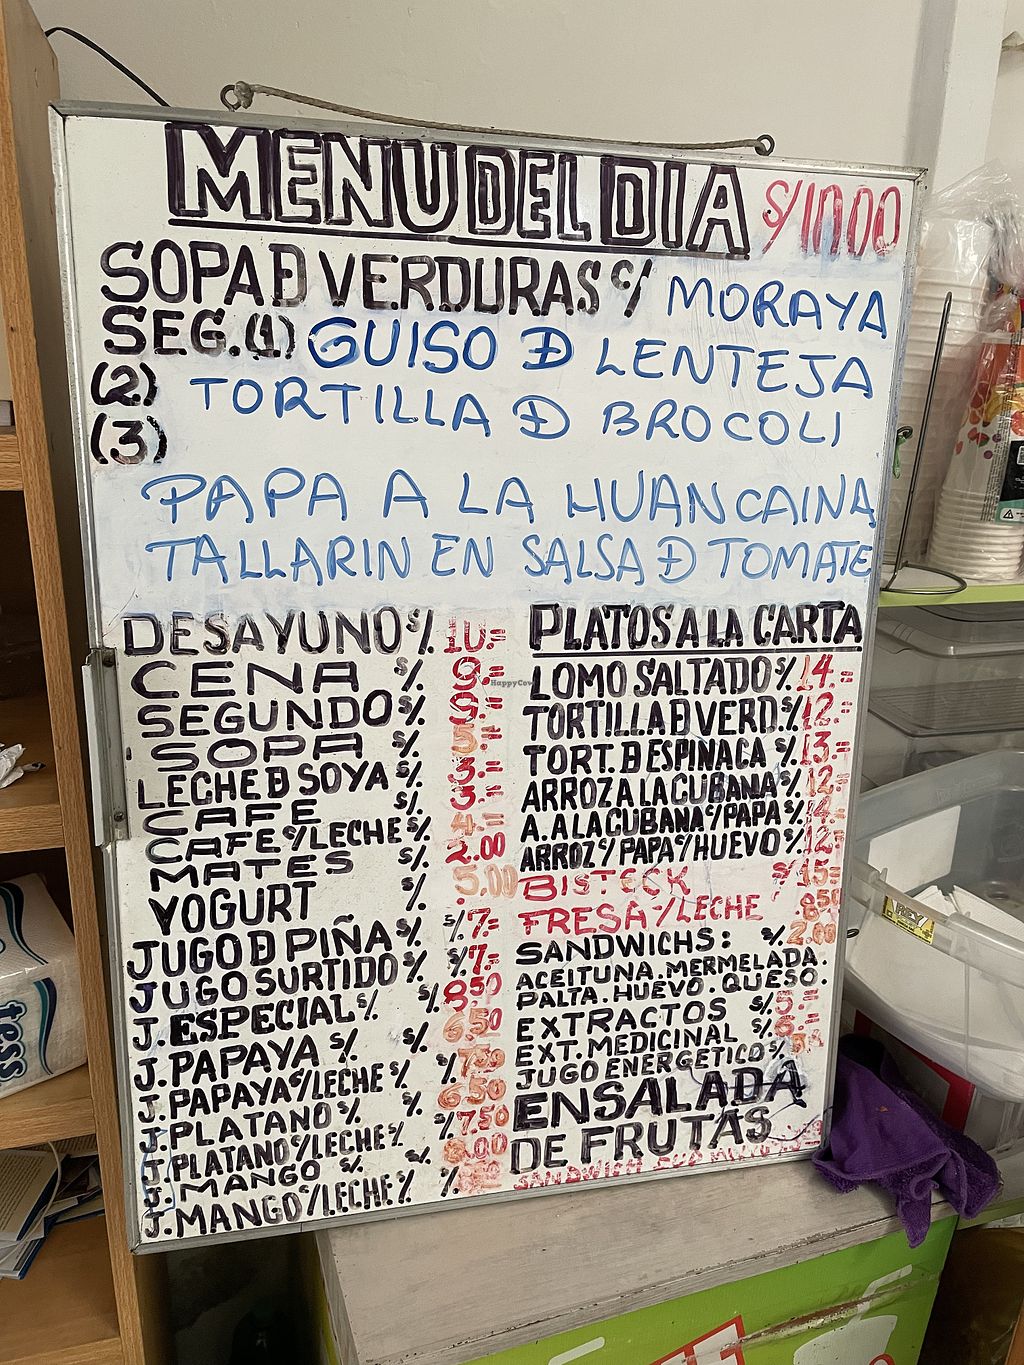 MENU DEL DIA S/10.00
SOPA D VERDURAS C/ MORAYA
SEG. (1) GUISO D LENTEJA
(2) TORTILLA D BROCOLI
(3)
PAPA A LA HUANCAINA
TALLARIN EN SALSA D TOMATE
DESAYUNO S/. 10.=
CENA S/. 9.=
SEGUNDO S/. 9.=
SOPA S/. 5.=
LECHE D SOYA S/. 3.=
CAFE S/. 3.=
CAFE C/LECHE S/. 4.=
MATES S/. 2.00
YOGURT S/. 5.00
JUGO D PIÑA S/. S/7=
JUGO SURTIDO S/. S/.7=
J. ESPECIAL S/. S/. 8.50
J. PAPAYA S/. S/. 6.50
J. PAPAYA C/LECHE S/. S/. 7.50
J. PLATANO S/. 6.50
J. PLATANO C/LECHE S/. S/7.50
J. MANGO S/. S/. 8.00
J. MANGO C/LECHE S/. S/.
PLATOS A LA CARTA
LOMO SALTADO S/. 14.=
TORTILLA D VERD. S/. 12.=
TORT. D ESPINACA S/. 13=
ARROZ A LA CUBANA S/. 12.=
A. A LA CUBANA C/PAPA S/. 14.=
ARROZ C/PAPA C/HUEVO S/. 12=
BISTECK S/15=
FRESA Y/LECHE .850
SANDWICHS: S/. 2.00
ACEITUNA. MERMELADA.
PALTA. HUEVO. QUESO.
EXTRACTOS S/. 5.=
EXT. MEDICINAL S/. 6.=
JUGO ENERGETICO S/.
ENSALADA
DE FRUTAS
SANDWICH
HappyCow
REY
tess